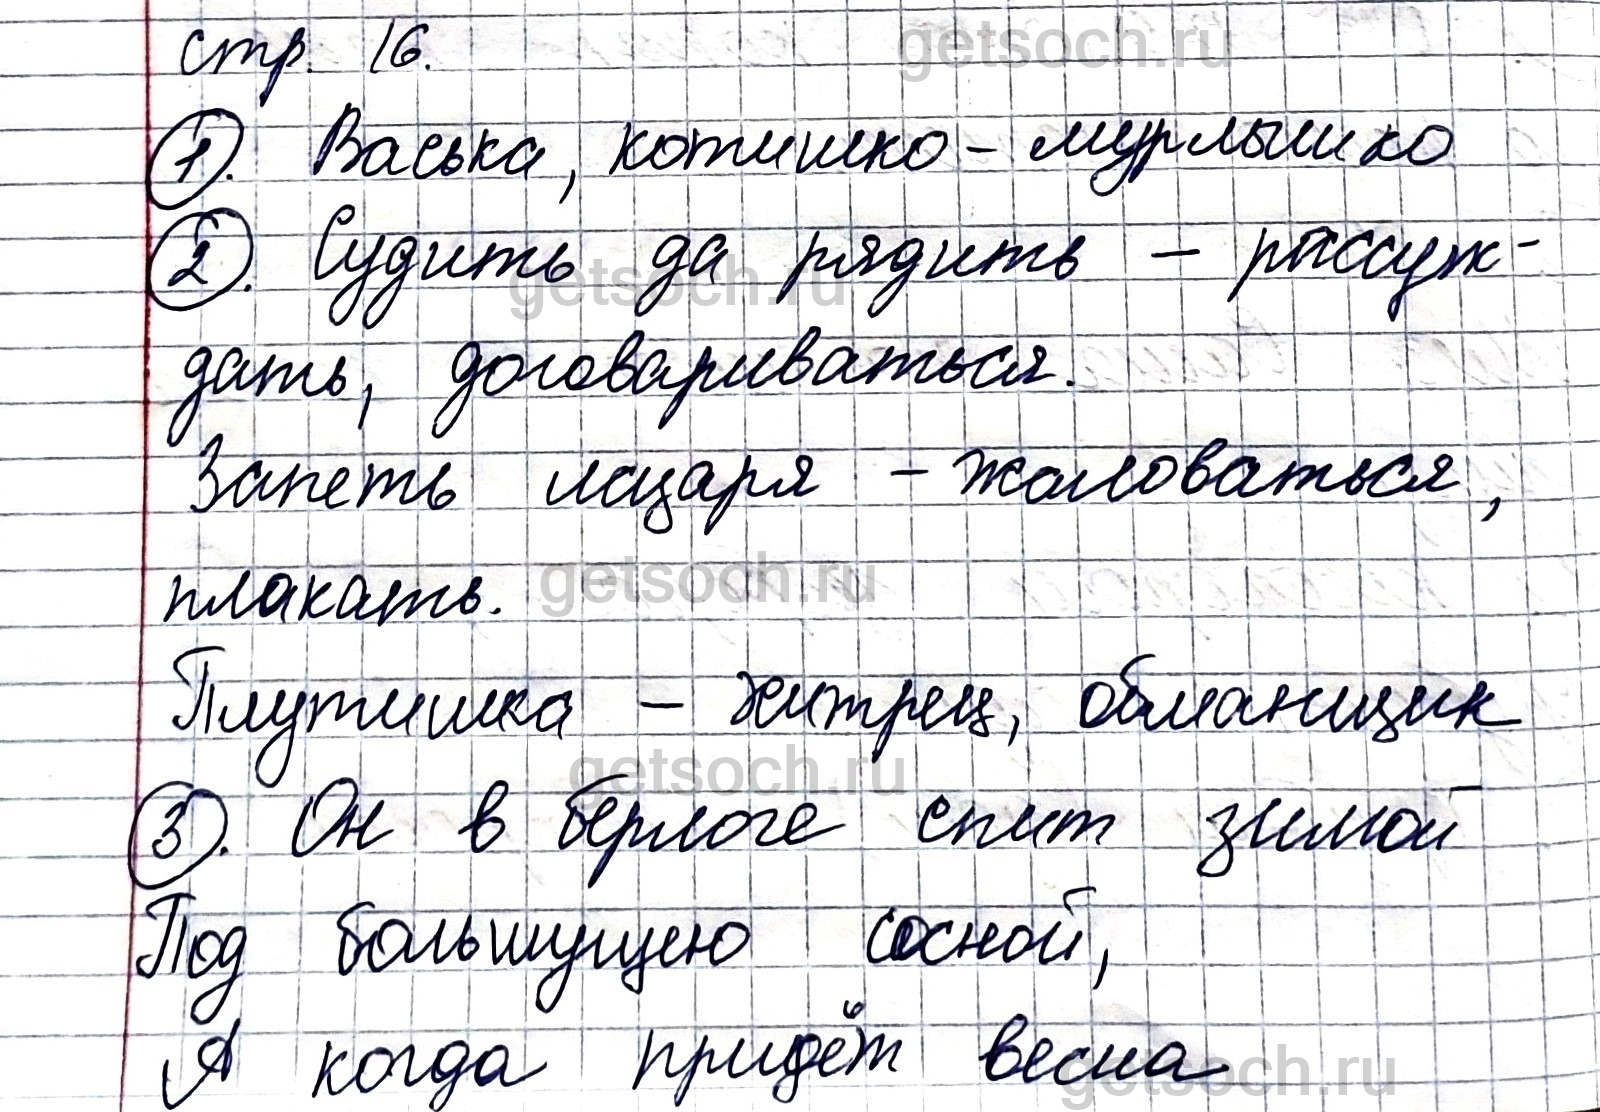 getsoch.ru
стр. 16.
1. Васька, котишко - мурлышко
2. Судить да рядить - рассуж-
getsoch.ru
дать, договариваться.
Запеть лазаря - жаловаться,
getsoch.ru
плакать.
Плутишка - хитрец, обманщик
getsoch.ru
3. Он в берлоге спит зимой
Под большущею сосной,
А когда придёт весна
getsoch.ru